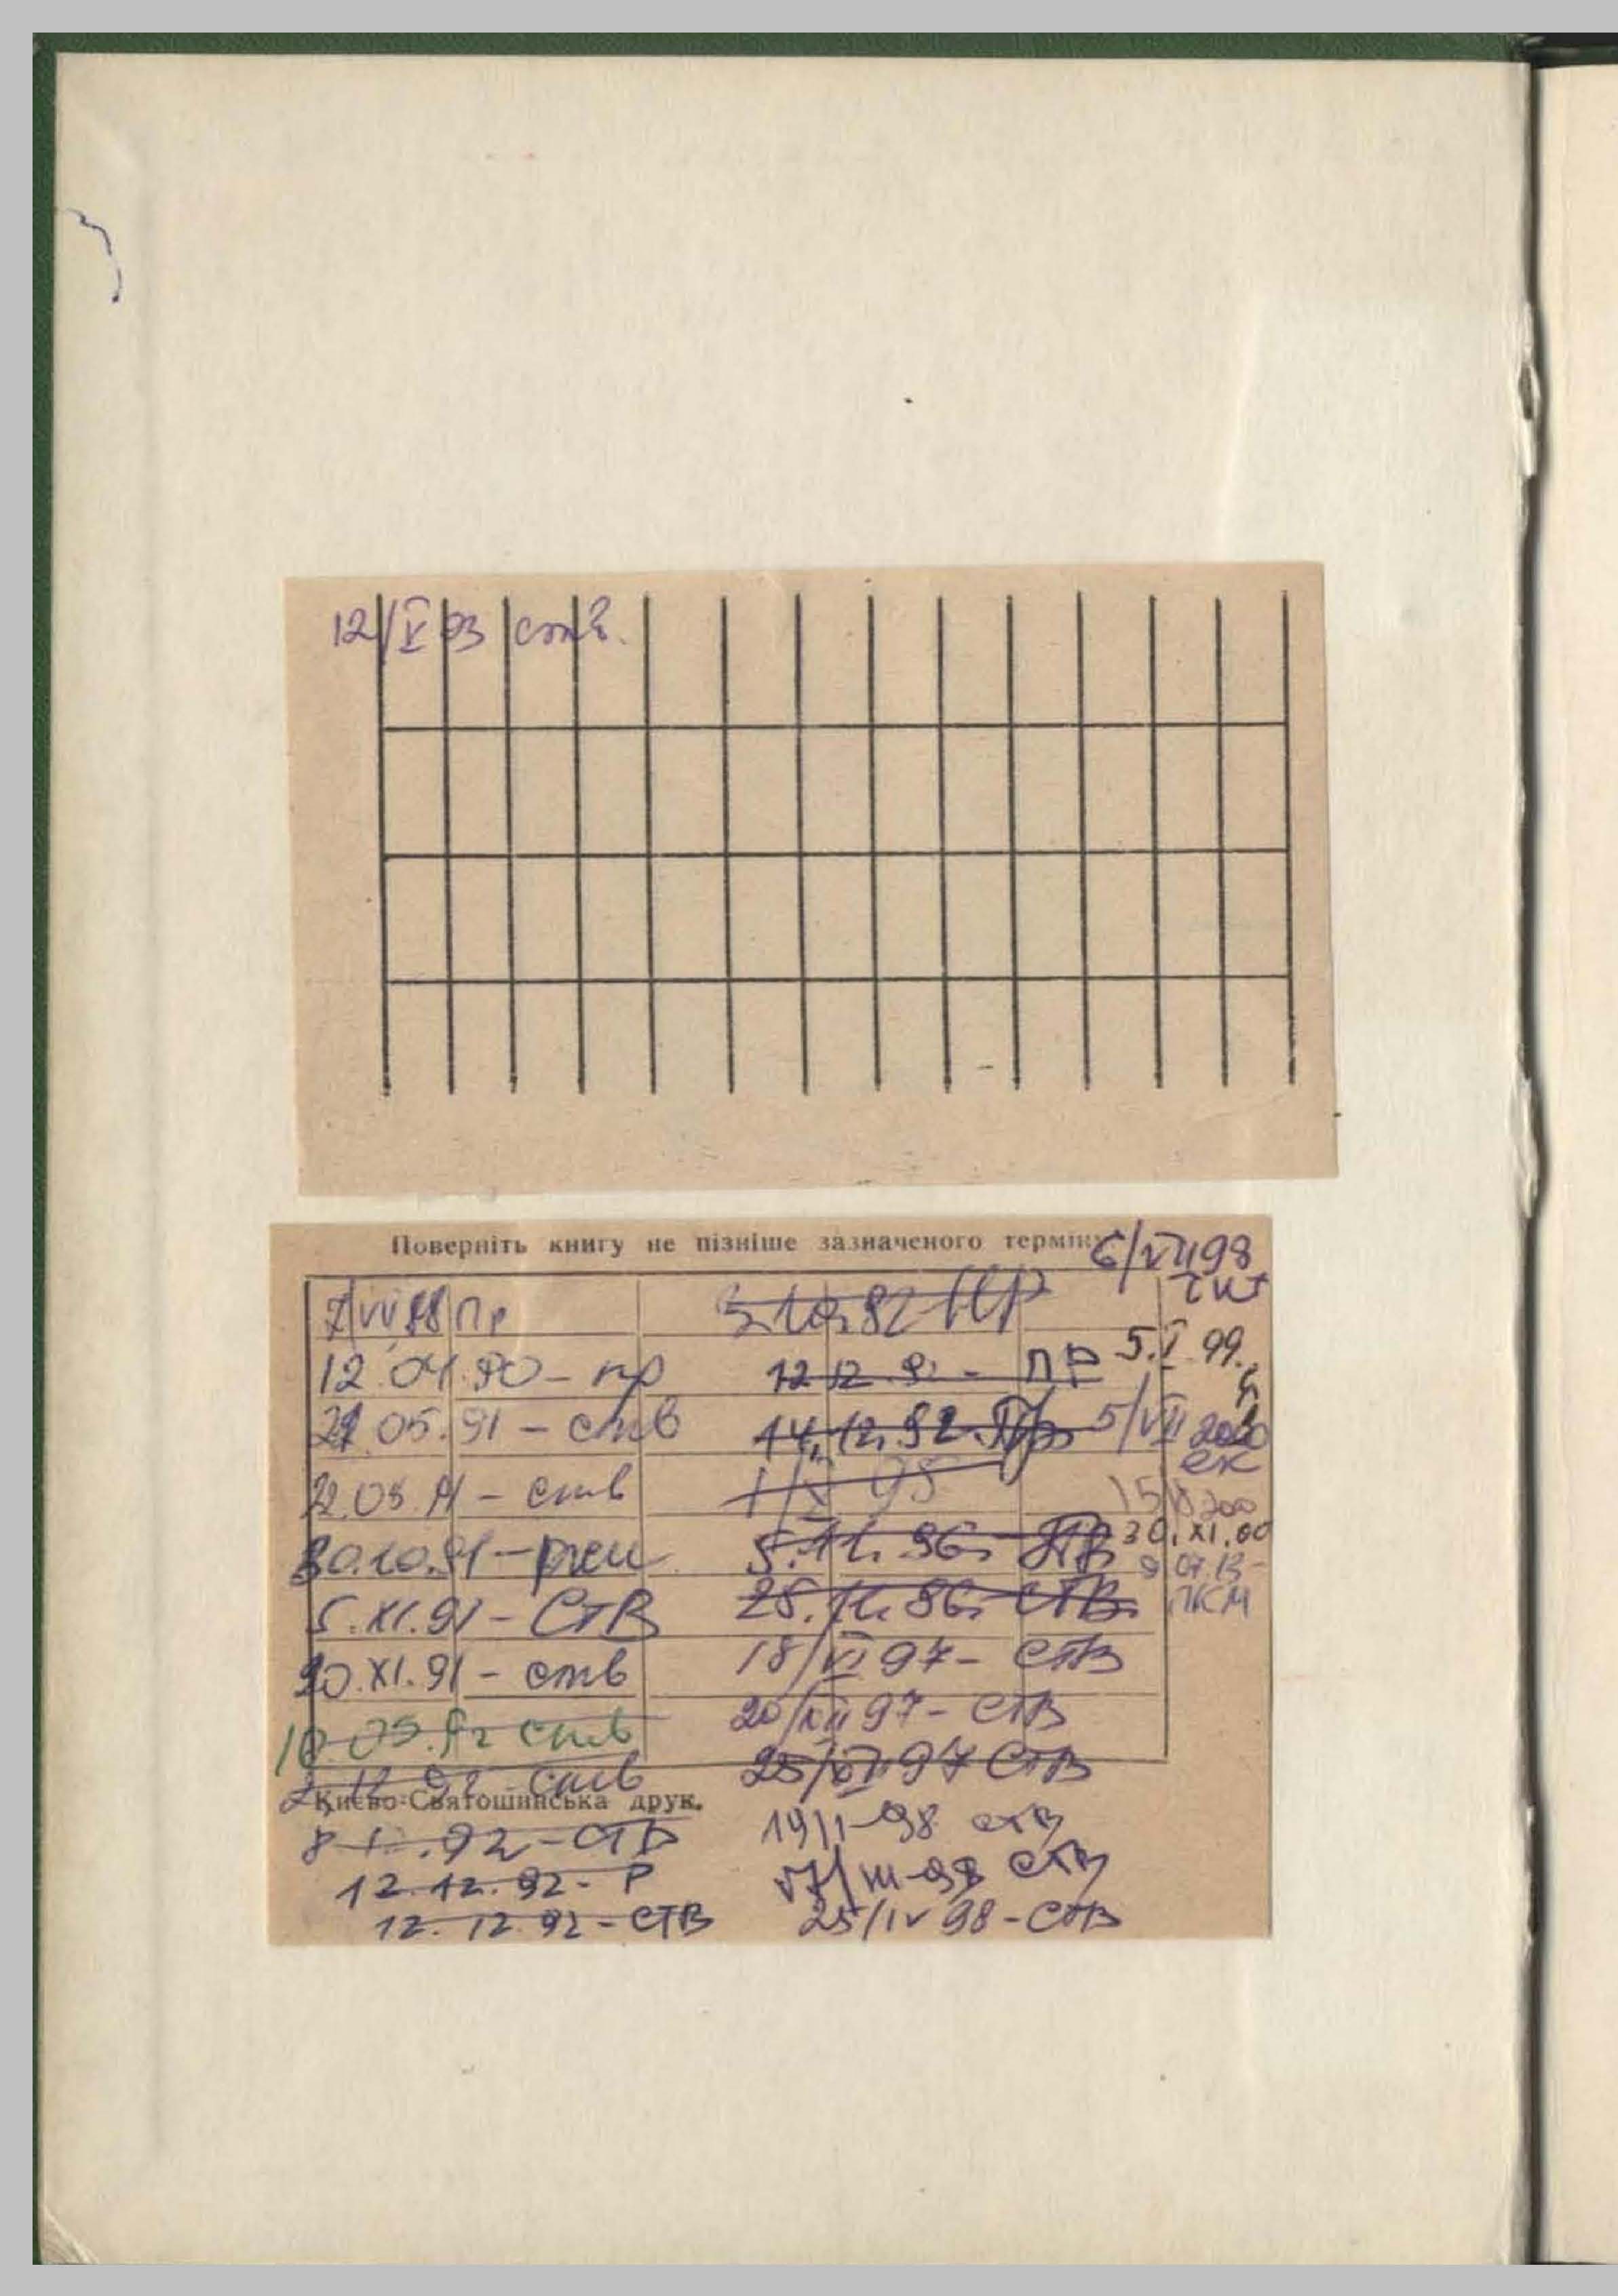 12/V 93 ств.
Поверніть книгу не пізніше зазначеного терміну
6/VII 98
12.04.90 - пр
21.05.91 - ств
22.05.91 - ств
30.10.91 -
5.XI.91 - СТВ
20.XI.91 - ств
10.05.92 ств
2.12.92 - ств
Києво-Святошинська друк.
92 - СТВ
12.12.92 - Р
12.12.92 - СТВ
12.12.92 - ПР
14.12.92. Пр
1/X 95
5.11.96. СТВ
25.11.96. СТВ
18/VI 97 - СТВ
20/XII 97 - СТВ
25/XII 97 СТВ
19/I-98 СТВ
17/III-98 СТВ
25/IV 98 - СТВ
5.I.99.
5/VII 2000
ек
30.XI.00
9.07.13 -
ПКМ